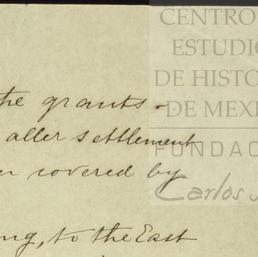 CENTRO
ESTUDIO
DE HISTO
DE MEXI
the grants -
aller settlement
FUNDAC
covered by
Carlos
ng, to the East